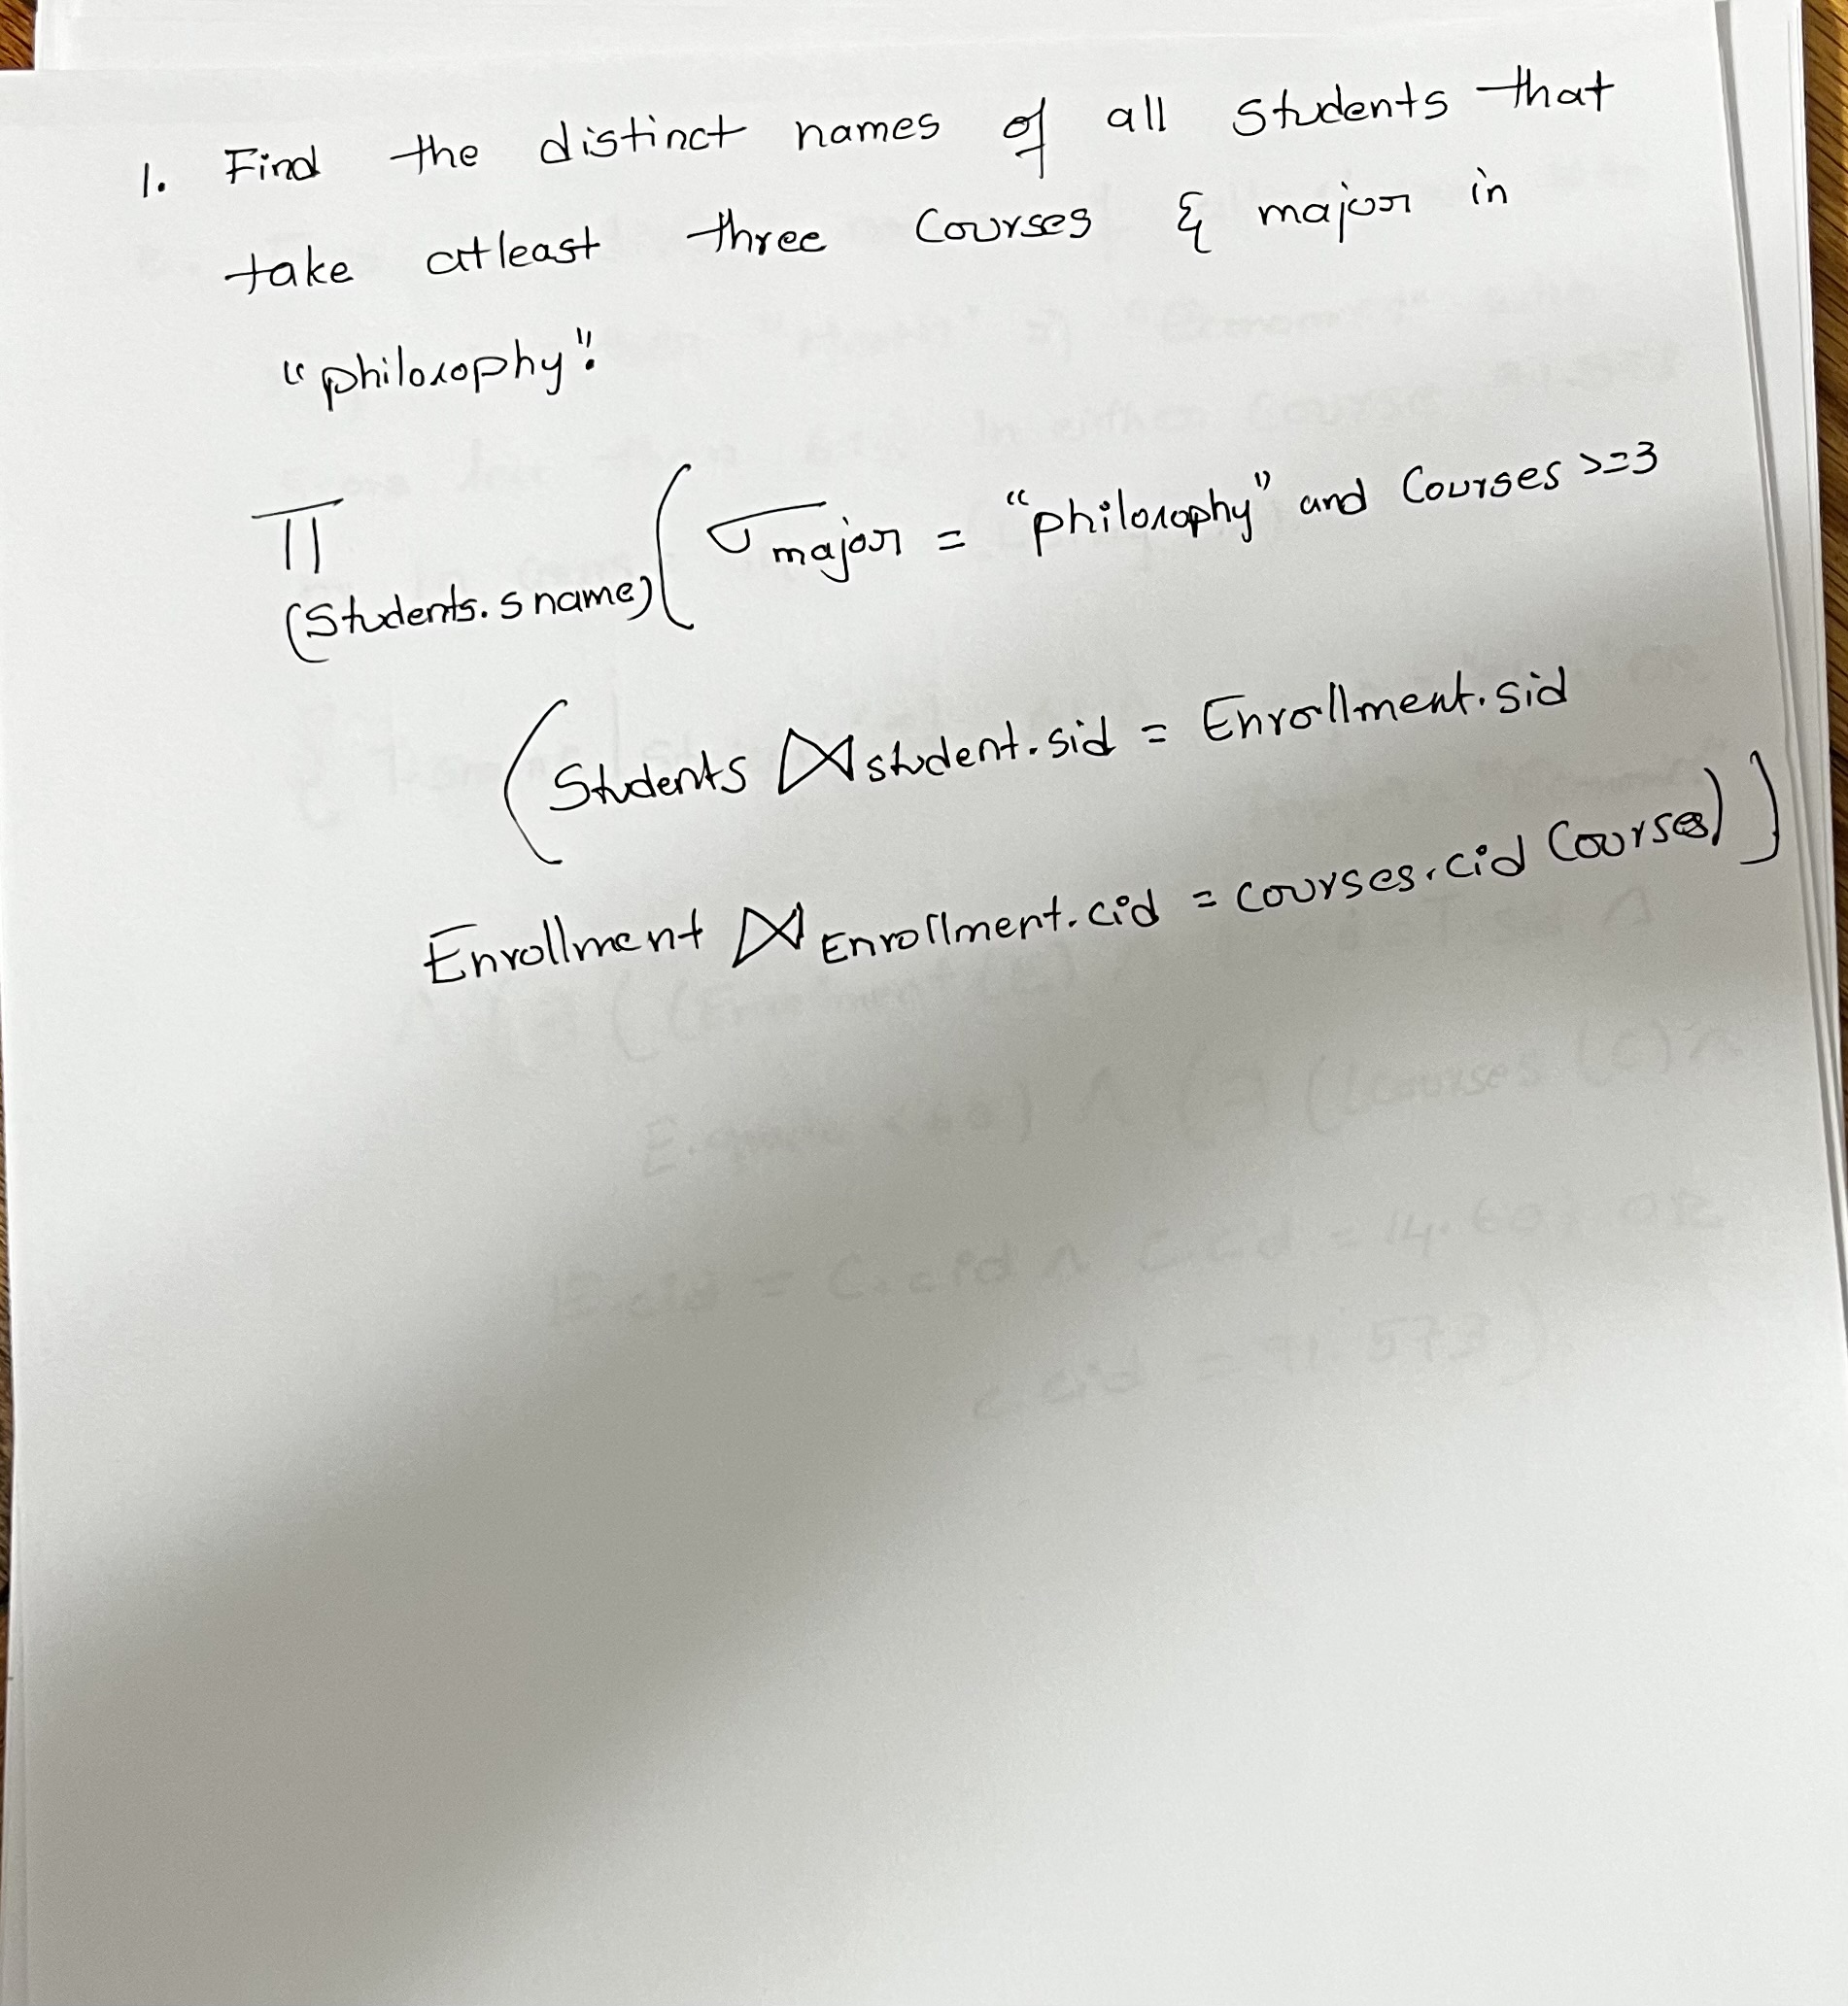 1. Find the distinct names of all students that
take atleast three Courses & major in
"philosophy".
π (Students.sname) ( σ major = "philosophy" and Courses >=3
( Students ⋈ student.sid = Enrollment.sid
Enrollment ⋈ Enrollment.cid = courses.cid Courses) )